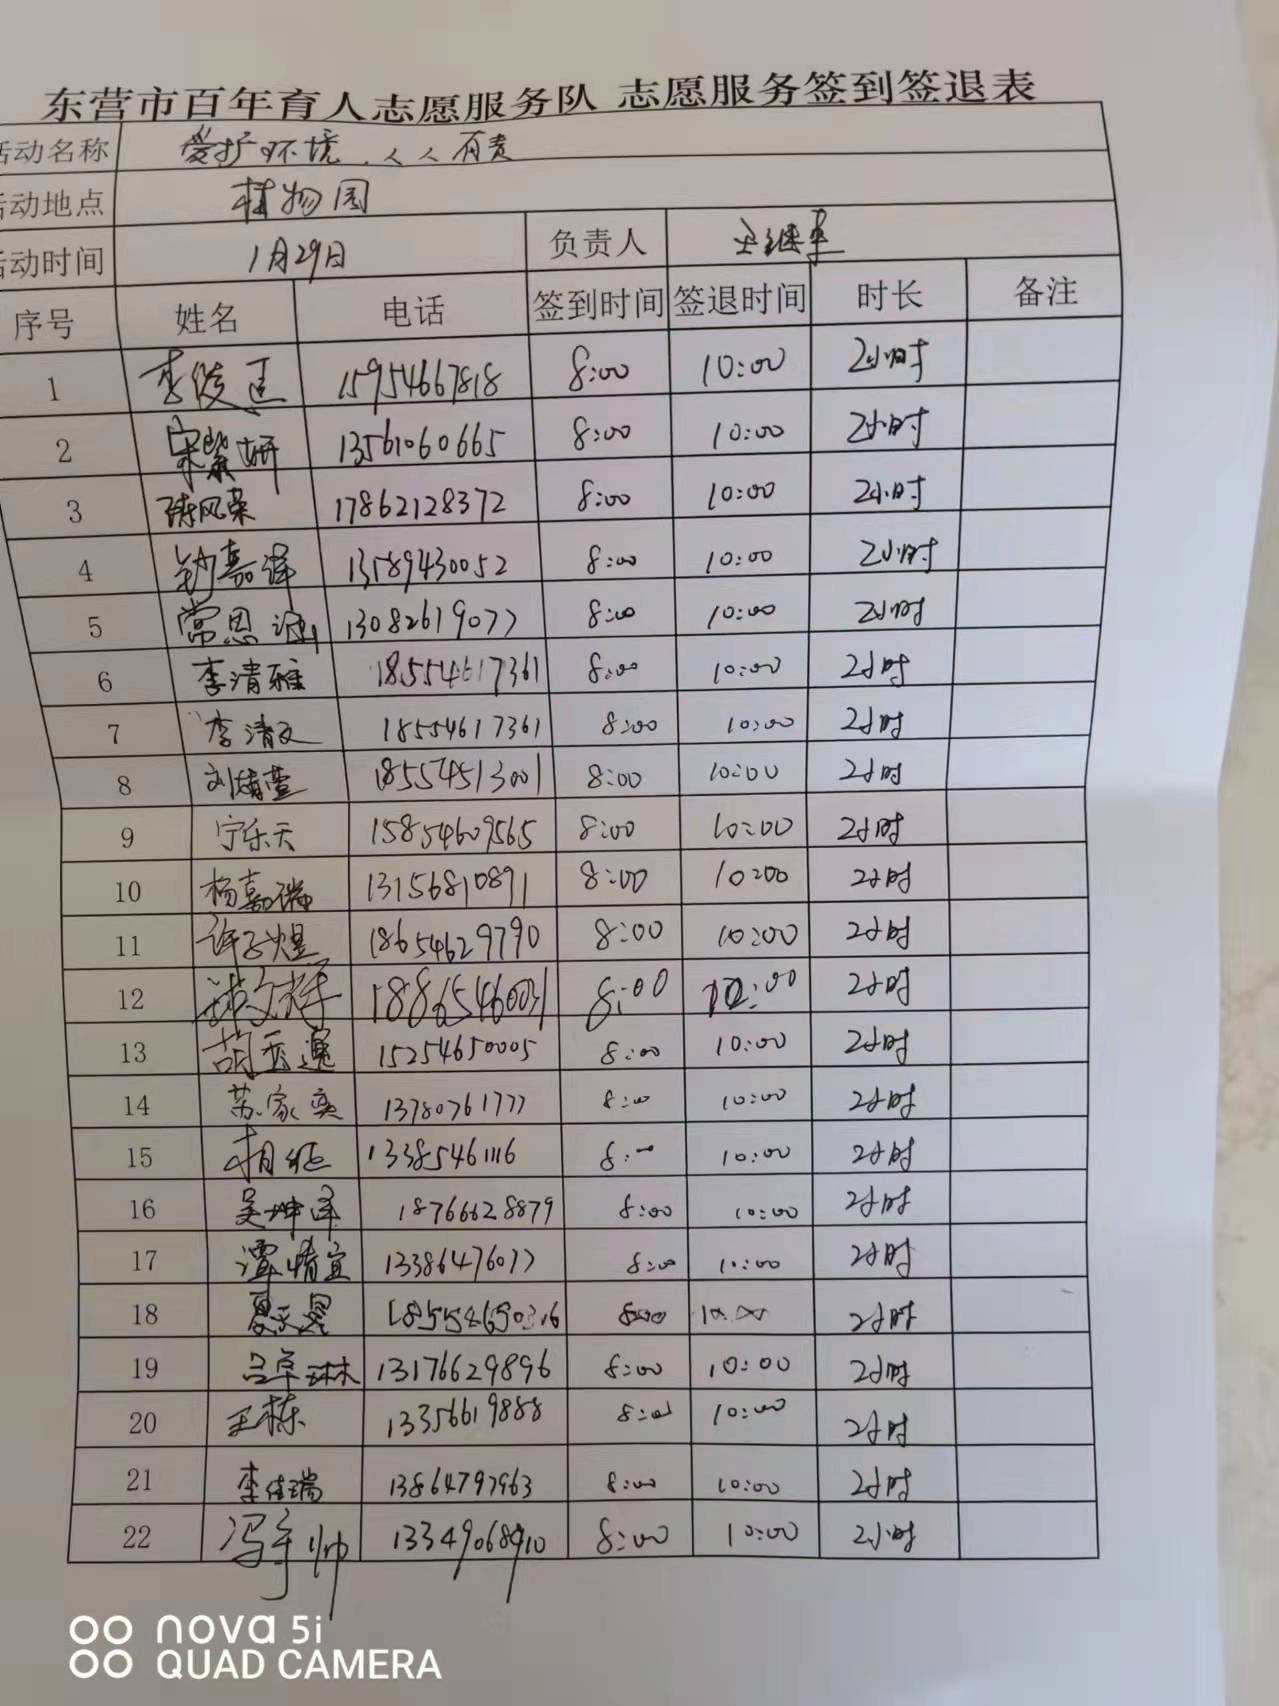 东营市百年育人志愿服务队 志愿服务签到签退表
活动名称 爱护环境,人人有责
活动地点 植物园
活动时间 1月29日 负责人
序号 姓名 电话 签到时间 签退时间 时长 备注
1 李俊廷 15954667818 8:00 10:00 2小时
2 宋紫妍 13561060665 8:00 10:00 2小时
3 陈风荣 17862128372 8:00 10:00 2小时
4 钞嘉译 13589430052 8:00 10:00 2小时
5 常恩涵 13082619077 8:00 10:00 2小时
6 李清雅 18554617361 8:00 10:00 2小时
7 李清文 18554617361 8:00 10:00 2小时
8 刘婧萱 185574513001 8:00 10:00 2小时
9 宁乐天 15854609565 8:00 10:00 2小时
10 杨嘉瑞 13156810891 8:00 10:00 2小时
11 许子煜 18654629790 8:00 10:00 2小时
12 18865460031 8:00 10:00 2小时
13 胡玉逸 15254650005 8:00 10:00 2小时
14 苏家奕 13780761777 8:00 10:00 2小时
15 13385461116 8:00 10:00 2小时
16 吴坤泽 18766628879 8:00 10:00 2小时
17 谭情宜 13386476077 8:00 10:00 2小时
18 夏天昊 18554650316 8:00 10:00 2小时
19 吕卓琳 13176629896 8:00 10:00 2小时
20 王栋 13356619888 8:00 10:00 2小时
21 李佳瑞 13864797963 8:00 10:00 2小时
22 冯子帅 13349068910 8:00 10:00 2小时
nova 5i
QUAD CAMERA